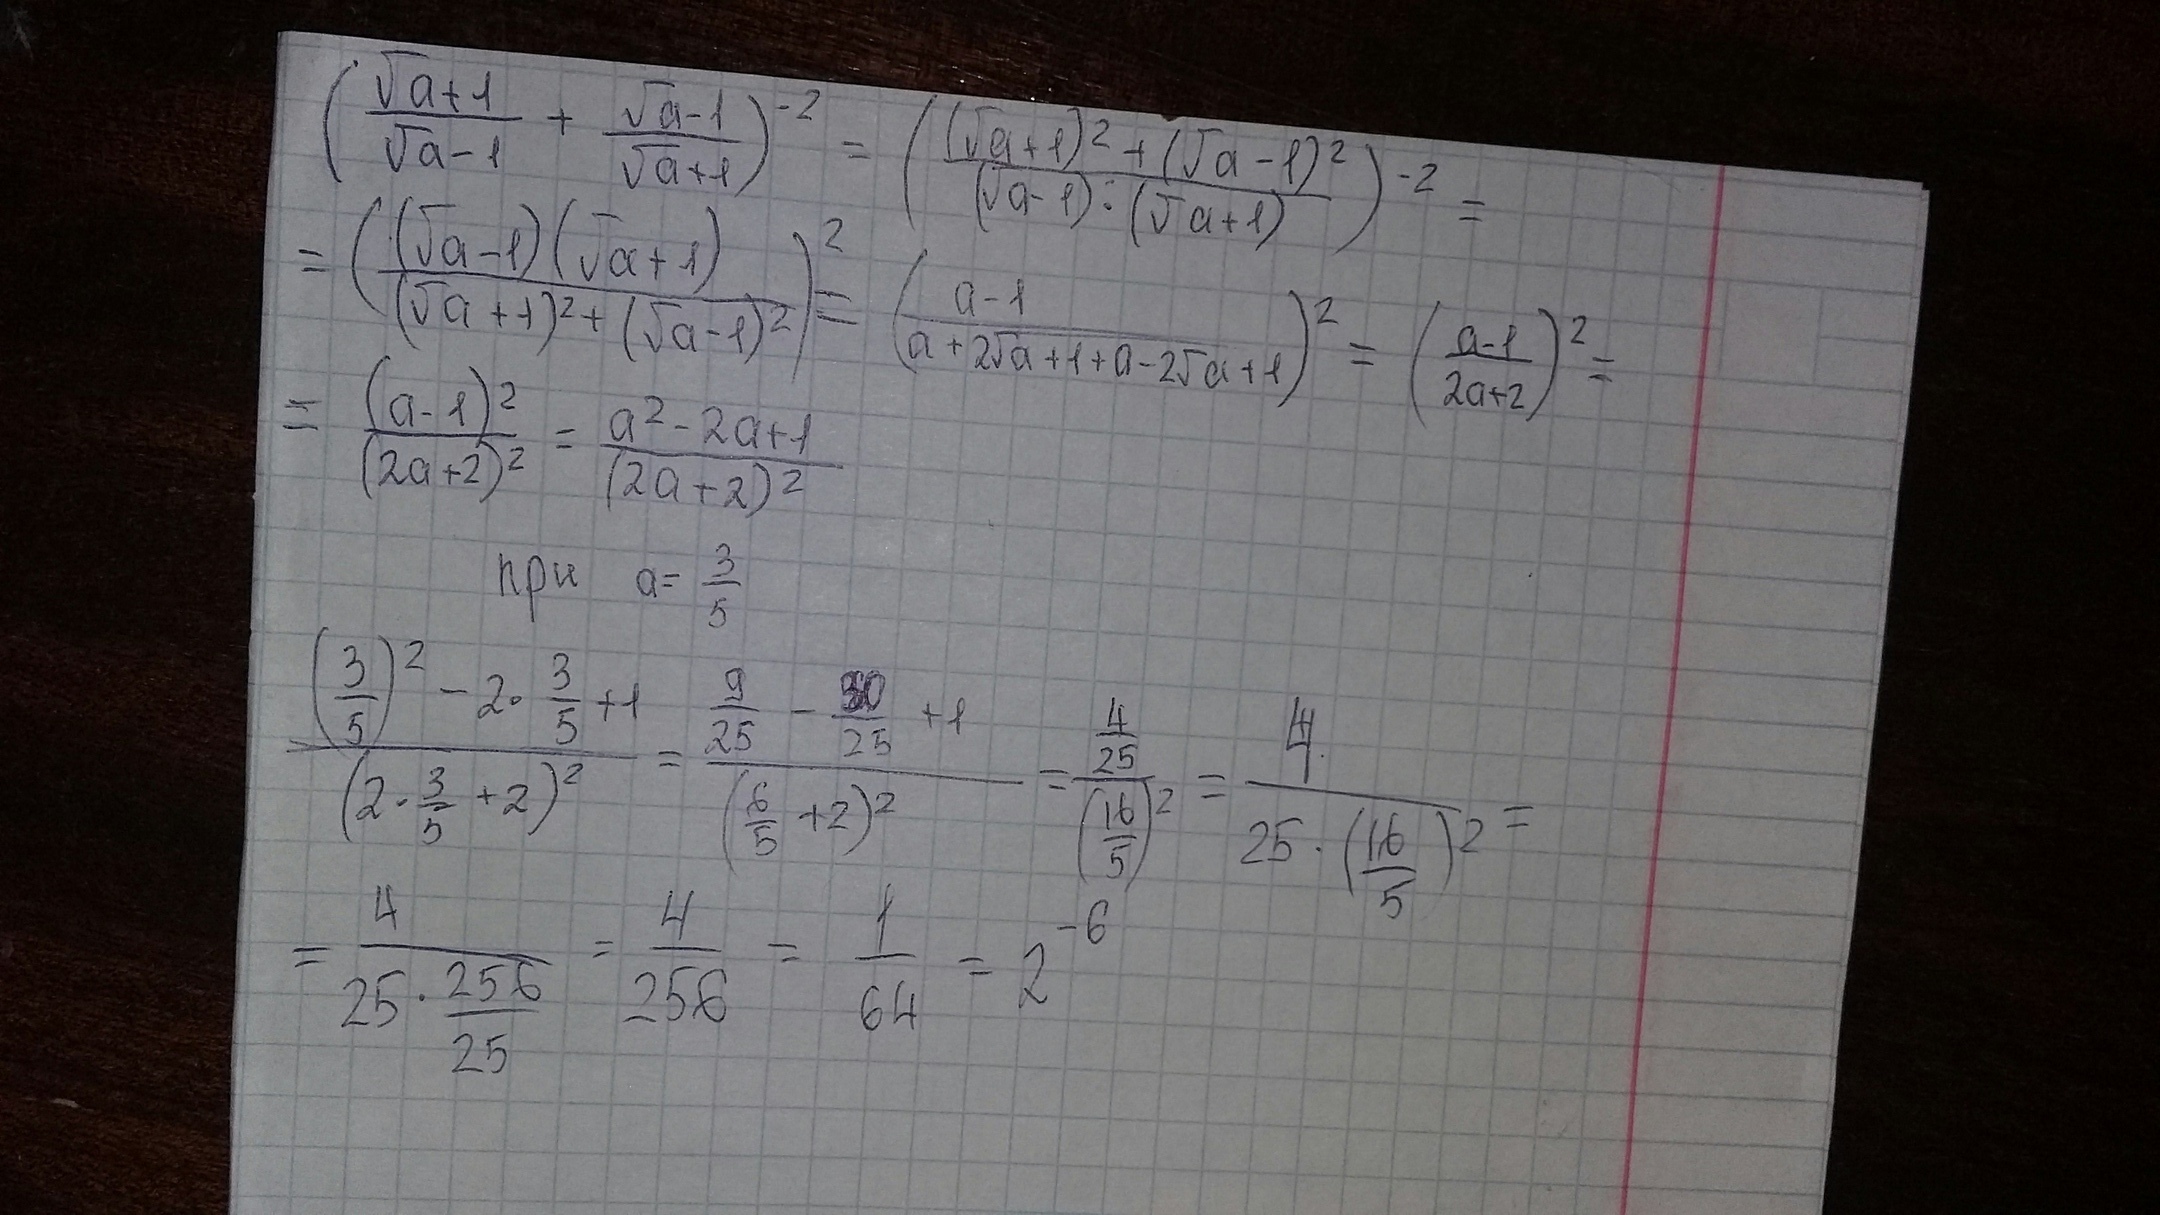 (√a+1/√a-1 + √a-1/√a+1)^-2 = ((√a+1)^2+(√a-1)^2/(√a-1)·(√a+1))^-2 =
= ((√a-1)(√a+1)/(√a+1)^2+(√a-1)^2)^2 = (a-1/a+2√a+1+a-2√a+1)^2 = (a-1/2a+2)^2 =
= (a-1)^2/(2a+2)^2 = a^2-2a+1/(2a+2)^2
при a= 3/5
(3/5)^2-2·3/5+1/(2·3/5+2)^2 = 9/25-30/25+1/(6/5+2)^2 = 4/25/(16/5)^2 = 4/25·(16/5)^2 =
= 4/25·256/25 = 4/256 = 1/64 = 2^-6